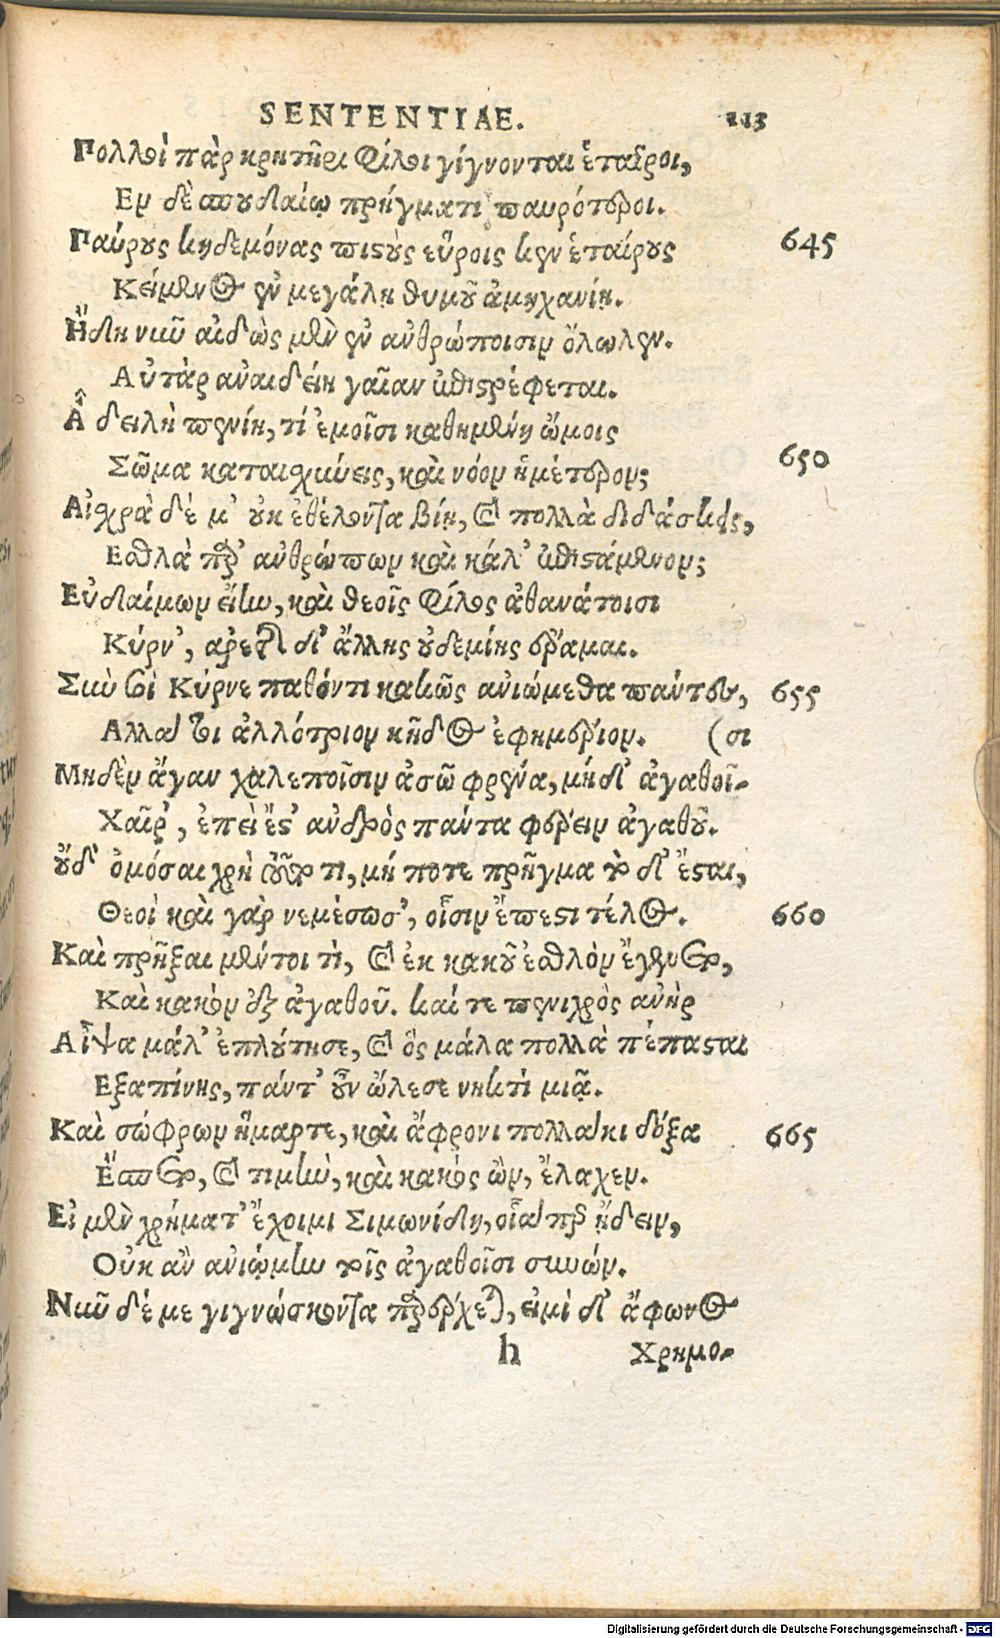 SENTENTIAE. 113
Πολλοὶ πὰρ κρητῆρι φίλοι γίγνονται ἑταῖροι,
Εν δὲ σπουδαίῳ πρήγματι παυρότεροι.
Παύρους κηδεμόνας πιστοὺς εὕροις κεν ἑταίρους 645
Κείμενος ἐν μεγάλῃ θυμοῦ ἀμηχανίῃ.
Ἤδη νῦν αἰδὼς μὲν ἐν ἀνθρώποισιν ὄλωλεν.
Αὐτὰρ ἀναιδείη γαῖαν ἐπιστρέφεται.
Ἆ δειλὴ πενίη, τί ἐμοῖσι καθημένη ὤμοις
Σῶμα καταισχύνεις, καὶ νόον ἡμέτερον; 650
Αἰσχρὰ δέ μ' οὐκ ἐθέλοντα βίῃ, καὶ πολλὰ διδάσκεις,
Εσθλὰ παρ' ἀνθρώπων καὶ κάλ' ἐπιστάμενον;
Εὐδαίμων εἴην, καὶ θεοῖς φίλος ἀθανάτοισι
Κύρν', ἀρετῆς δ' ἄλλης οὐδεμίης ἔραμαι.
Σὺν σοὶ Κύρνε παθόντι κακῶς ἀνιώμεθα πάντες, 655
Αλλά τοι ἀλλότριον κῆδος ἐφημέριον. (σι
Μηδὲν ἄγαν χαλεποῖσιν ἀσῶ φρένα, μήδ' ἀγαθοῖ-
Χαῖρ', ἐπεὶ ἔστ' ἀνδρὸς πάντα φέρειν ἀγαθοῦ.
Οὔδ' ὀμόσαι χρὴ τοῦτό τι, μή ποτε πρῆγμα τόδ' ἔσται,
Θεοὶ καὶ γὰρ νεμέσωσ', οἷσιν ἔπεστι τέλος. 660
Καὶ πρῆξαι μέντοι τὶ, καὶ ἐκ κακοῦ ἐσθλὸν ἔγεντο,
Καὶ κακὸν ἐξ ἀγαθοῦ. καί τε πενιχρὸς ἀνὴρ
Αἶψα μάλ' ἐπλούτησε, καὶ ὃς μάλα πολλὰ πέπασται
Εξαπίνης, πάντ' οὖν ὤλεσε νηκτὶ μιᾷ.
Καὶ σώφρων ἥμαρτε, καὶ ἄφρονι πολλάκι δόξα 665
Ἕσπετο, καὶ τιμὴν, καὶ κακὸς ὢν, ἔλαχεν.
Εἰ μὲν χρήματ' ἔχοιμι Σιμωνίδη, οἷά περ ᾔδειν,
Οὐκ ἂν ἀνιῴμην τοῖς ἀγαθοῖσι συνών.
Νῦν δέ με γιγνώσκοντα παρέρχεται, εἰμὶ δ' ἄφωνος
h Χρημο-
Digitalisierung gefördert durch die Deutsche Forschungsgemeinschaft - DFG